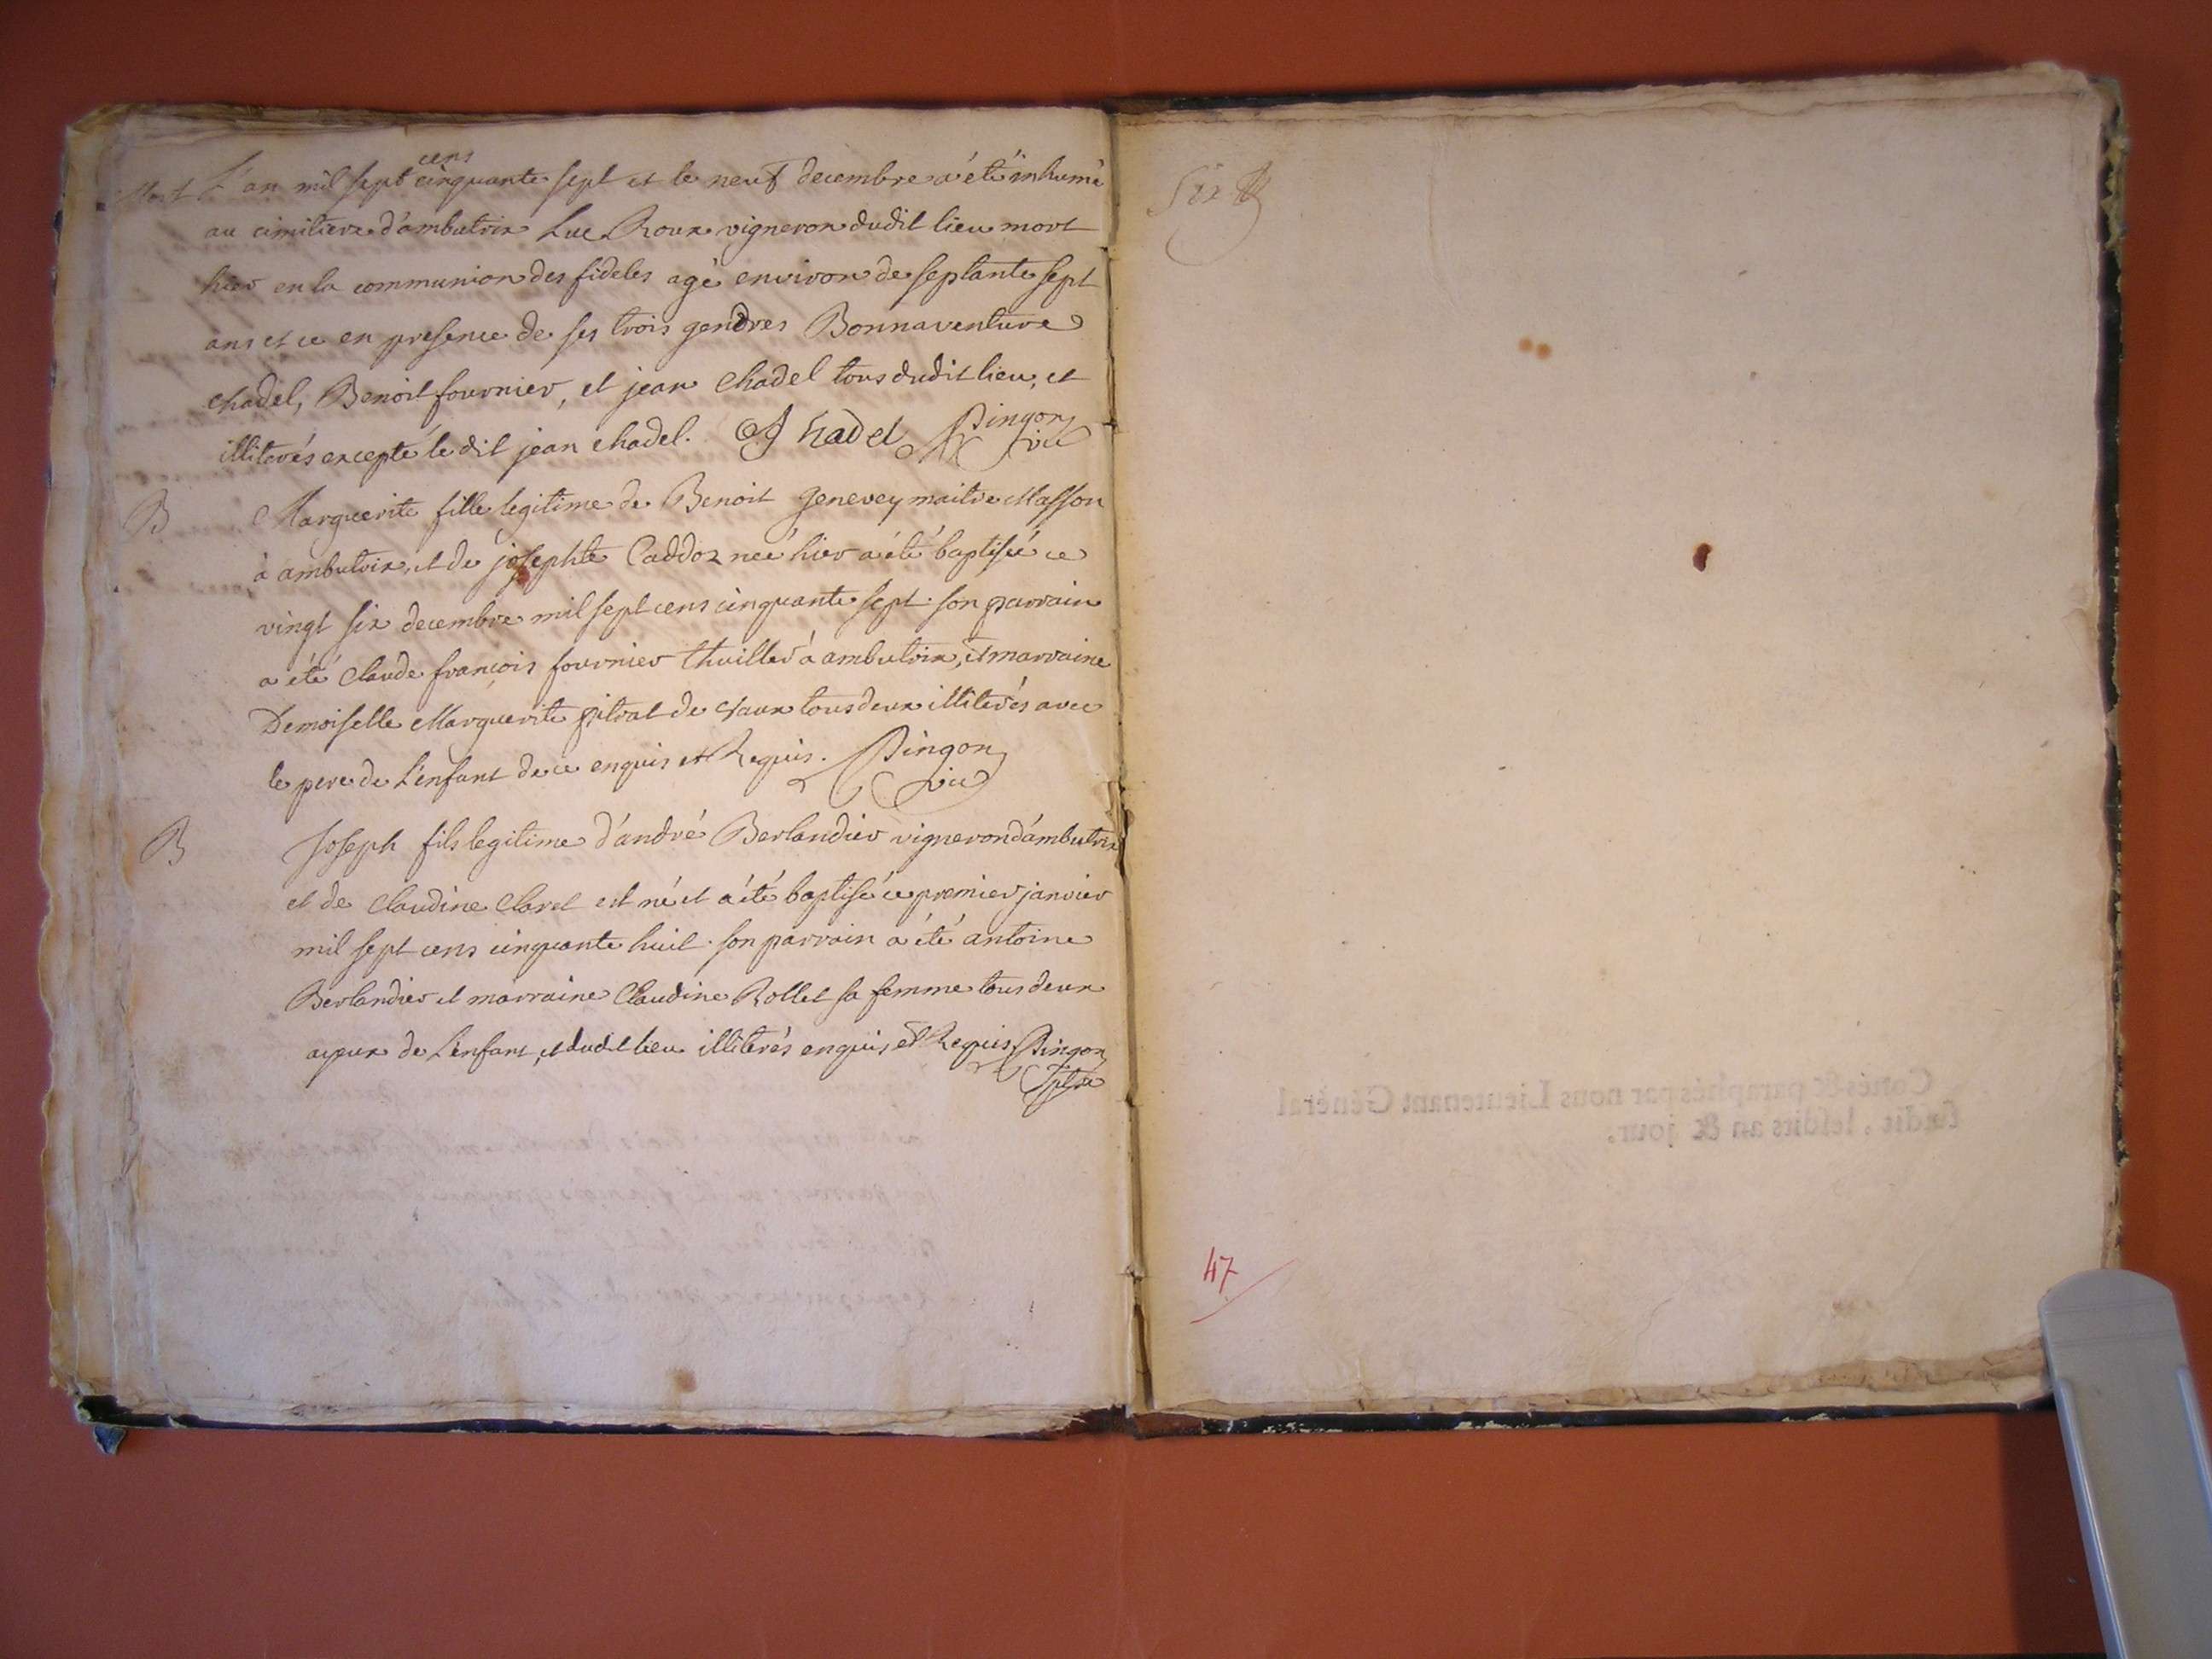 Mort L'an mil sept cens cinquante sept et le neuf decembre a été inhumé
au cimitiere d'ambutrix Luc Roux vigneron dudit lieu mort
hier en la communion des fideles agé environ de septante sept
ans et ce en presence de ses trois gendres Bonnaventure
chadel, Benoit fournier, et jean chadel tous dudit lieu, et
illiterés excepté le dit jean chadel. J chadel Pingon vic
B Marguerite fille legitime de Benoit Genevey maitre Masson
à ambutrix, et de josephte Caddoz neé hier a été baptisée ce
vingt six decembre mil sept cens cinquante sept. son parrain
a été Claude françois fournier thuiller à ambutrix, et marraine
Demoiselle Marguerite pitrat de vaux tous deux illiterés avec
le pere de L'enfant de ce enquis et Requis. Pingon vic
B Joseph fils legitime d'andré Berlandier vigneron d'ambutrix
et de Claudine Claret est né et a été baptisé ce premier janvier
mil sept cens cinquante huit. son parrain a été antoine
Berlandier et marraine Claudine Rollet sa femme tous deux
ayeux de L'enfant, et dudit lieu illiterés enquis et Requis Pingon
Six
Cotés & paraphés par nous Lieutenant Général
susdit, lesdits an & jour.
47